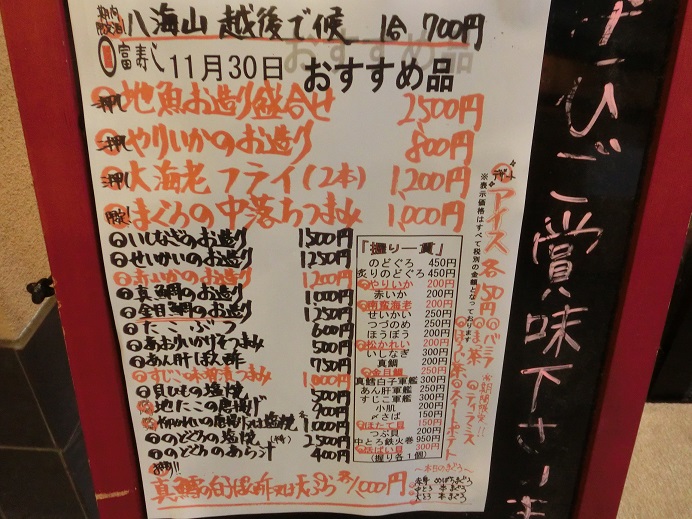 八海山 越後で候 1合 700円
富寿し 11月30日 おすすめ品
一押し 地魚お造り盛合せ 2,500円
二押し やりいかのお造り 800円
三押し 大海老フライ(2本) 1,200円
まぐろの中落ちつまみ 1,000円
いしなぎのお造り 1500円
せいかいのお造り 1250円
赤いかのお造り 1200円
真鯛のお造り 1000円
金目鯛のお造り 1250円
たこぶつ 600円
あおりいかげそつまみ 500円
あん肝ぽん酢 750円
すじこ味噌漬つまみ 1,000円
貝ひもの塩焼 500円
地だこの唐揚げ
のどぐろの塩焼 2500円
のどぐろのあら汁 400円
真鱈の白子ぽん酢又は天ぷら 各1,000円
「握り一貫」
のどぐろ 450円
炙りのどぐろ 450円
やりいか 200円
赤いか 200円
南蛮海老 200円
せいかい 250円
つづのめ 250円
ほうぼう 200円
松かれい 200円
いしなぎ 300円
真鯛 200円
金目鯛 250円
真鱈白子軍艦 300円
あん肝軍艦 250円
すじこ軍艦 300円
小肌 200円
〆さば 150円
ほたて貝 150円
つぶ貝 200円
中とろ鉄火巻 950円
活ばい貝 300円
(握り各1個)
デザート アイス各150円
バニラ
まっ茶
ほうじ茶
ティラミス
スイートポテト
※表示価格はすべて税別の金額となっております
～本日のまぐろ～
中とろ 本まぐろ
大とろ 本まぐろ
ぜひご賞味下さいま